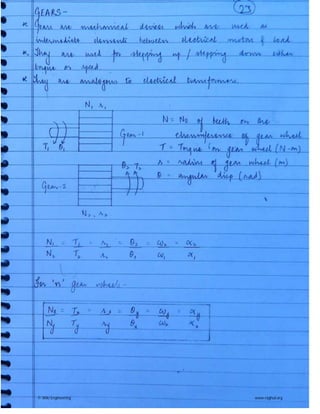 23
GEARS -
* Gears are mechanical devices which are used as
intermediate elements between electrical motor & load.
* They are used for stepping up / stepping down either
torque or speed.
* They are analogous to electrical transformers.
N₁, r₁
T₁ θ₁
Gear-1
N = No of teeth on the
circumference of gear wheel
T = Torque on gear wheel (N-m)
r = radius of gear wheel (m)
θ = angular disp (rad)
θ₂ T₂
Gear-2
N₂, r₂
N₁/N₂ = T₁/T₂ = r₁/r₂ = θ₂/θ₁ = ω₂/ω₁ = α₂/α₁
For 'n' gear wheels -
Nx/Ny = Tx/Ty = rx/ry = θy/θx = ωy/ωx = αy/αx